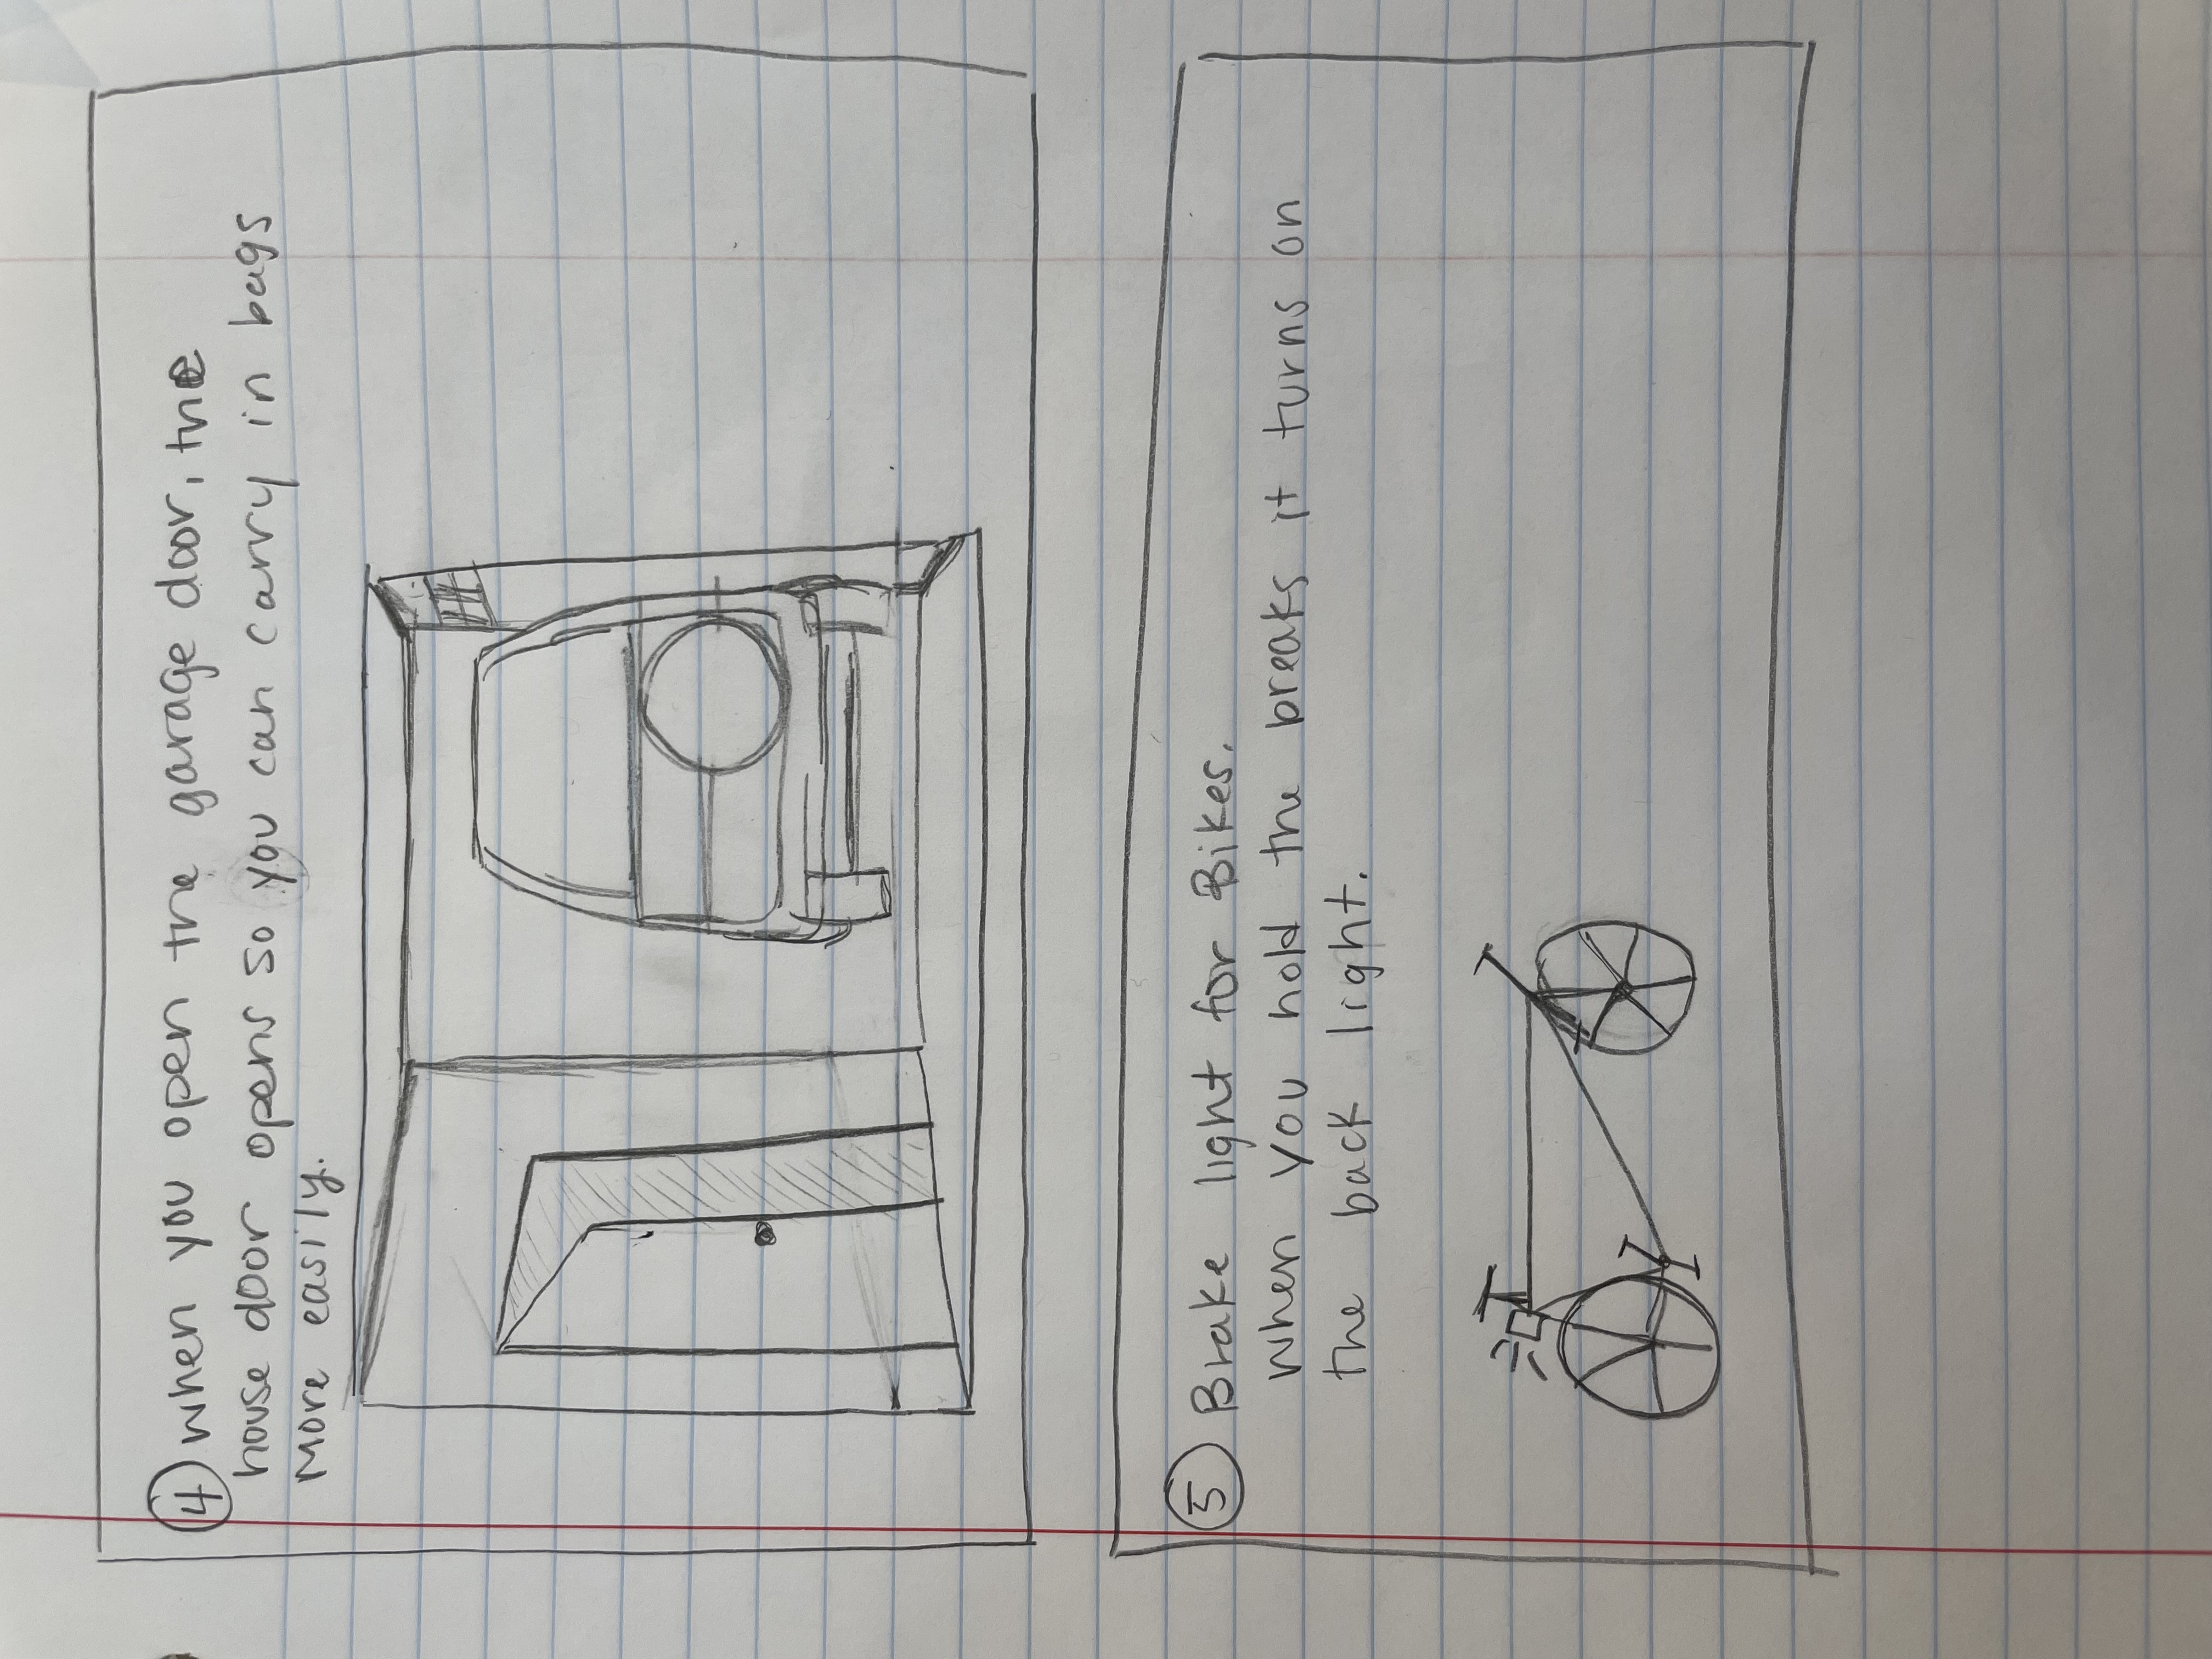 4 when you open the garage door, the
house door opens so you can carry in bags
more easily.
5 Brake light for Bikes.
When you hold the breaks it turns on
the back light.